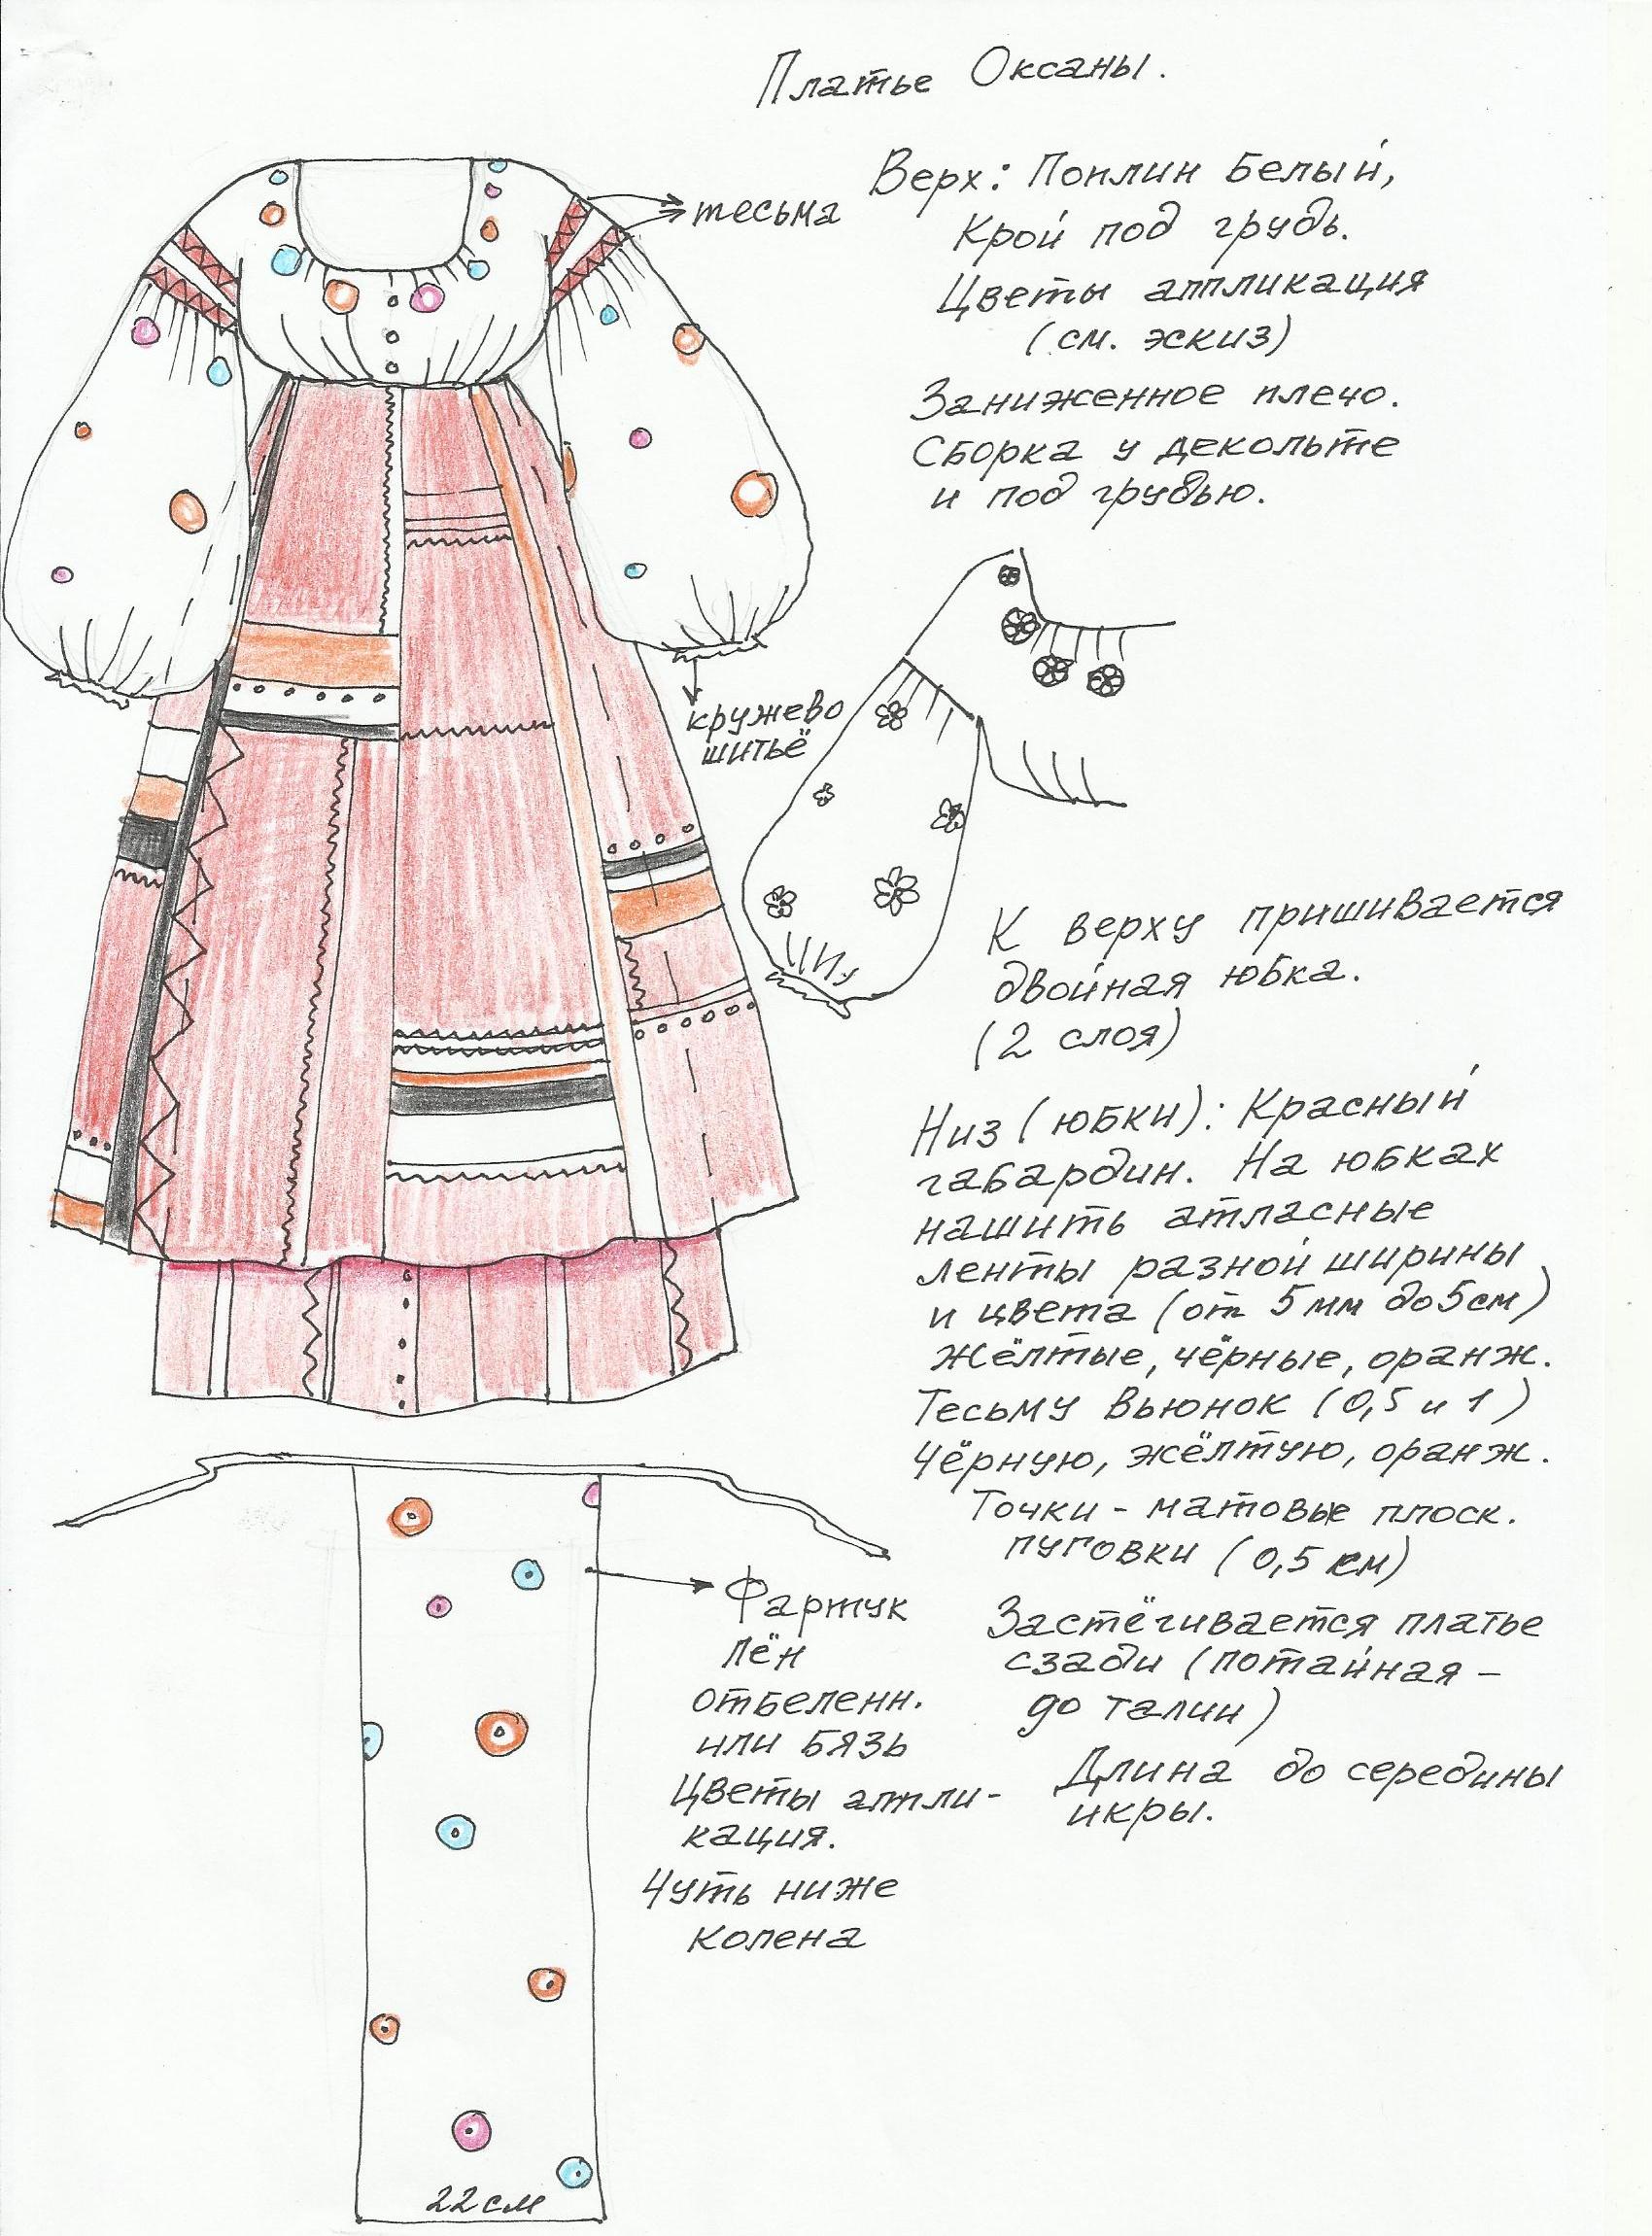 Платье Оксаны.
Верх: Поплин белый,
Крой под грудь.
Цветы аппликация
(см. эскиз)
Заниженное плечо.
Сборка у декольте
и под грудью.
тесьма
кружево
шитьё
К верху пришивается
двойная юбка.
(2 слоя)
Низ (юбки): Красный
габардин. На юбках
нашить атласные
ленты разной ширины
и цвета (от 5 мм до 5 см)
жёлтые, чёрные, оранж.
Тесьму Вьюнок (0,5 и 1)
чёрную, жёлтую, оранж.
Точки - матовые плоск.
пуговки (0,5 см)
Застёгивается платье
сзади (потайная -
до талии)
Длина до середины
икры.
Фартук
лён
отбеленн.
или бязь
Цветы аппли-
кация.
Чуть ниже
колена
22 см